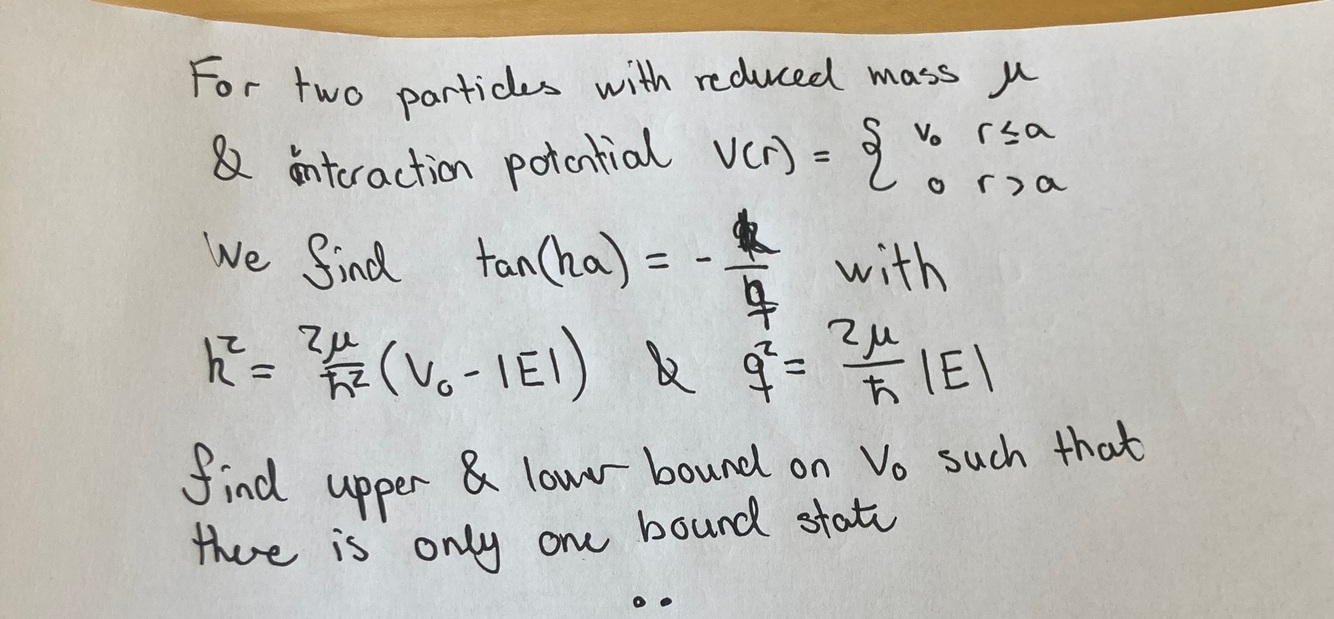 For two particles with reduced mass μ
& interaction potential V(r) = { V₀ r≤a
0 r>a
We find tan(ka) = - k/q with
k² = 2μ/ħ² (V₀ - |E|) & q² = 2μ/ħ |E|
find upper & lower bound on V₀ such that
there is only one bound state